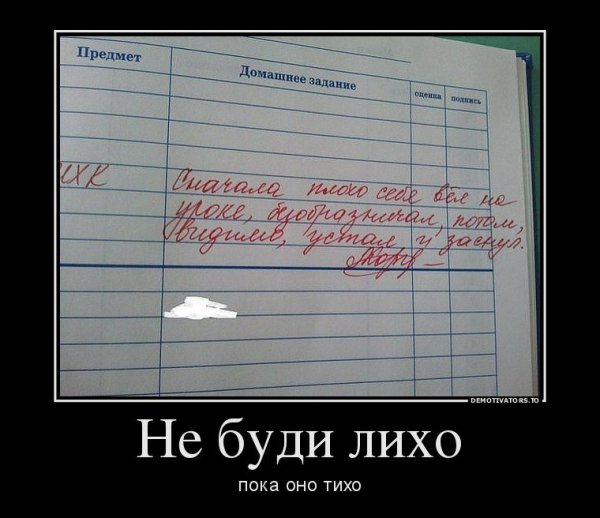 Предмет
Домашнее задание
оценка
подпись
МХК
Сначала плохо себя вёл на
уроке, безобразничал, потом,
видимо, устал, и заснул.
DEMOTIVATORS.TO
Не буди лихо
пока оно тихо